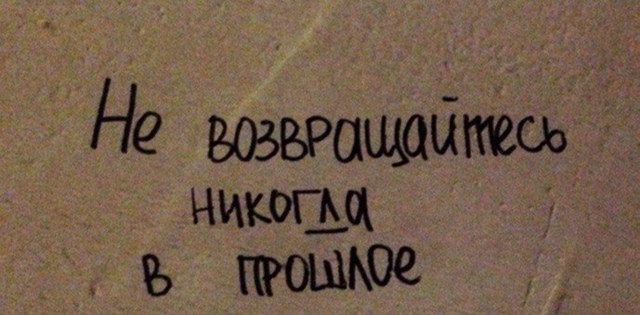 Не возвращайтесь
никогда
в прошлое